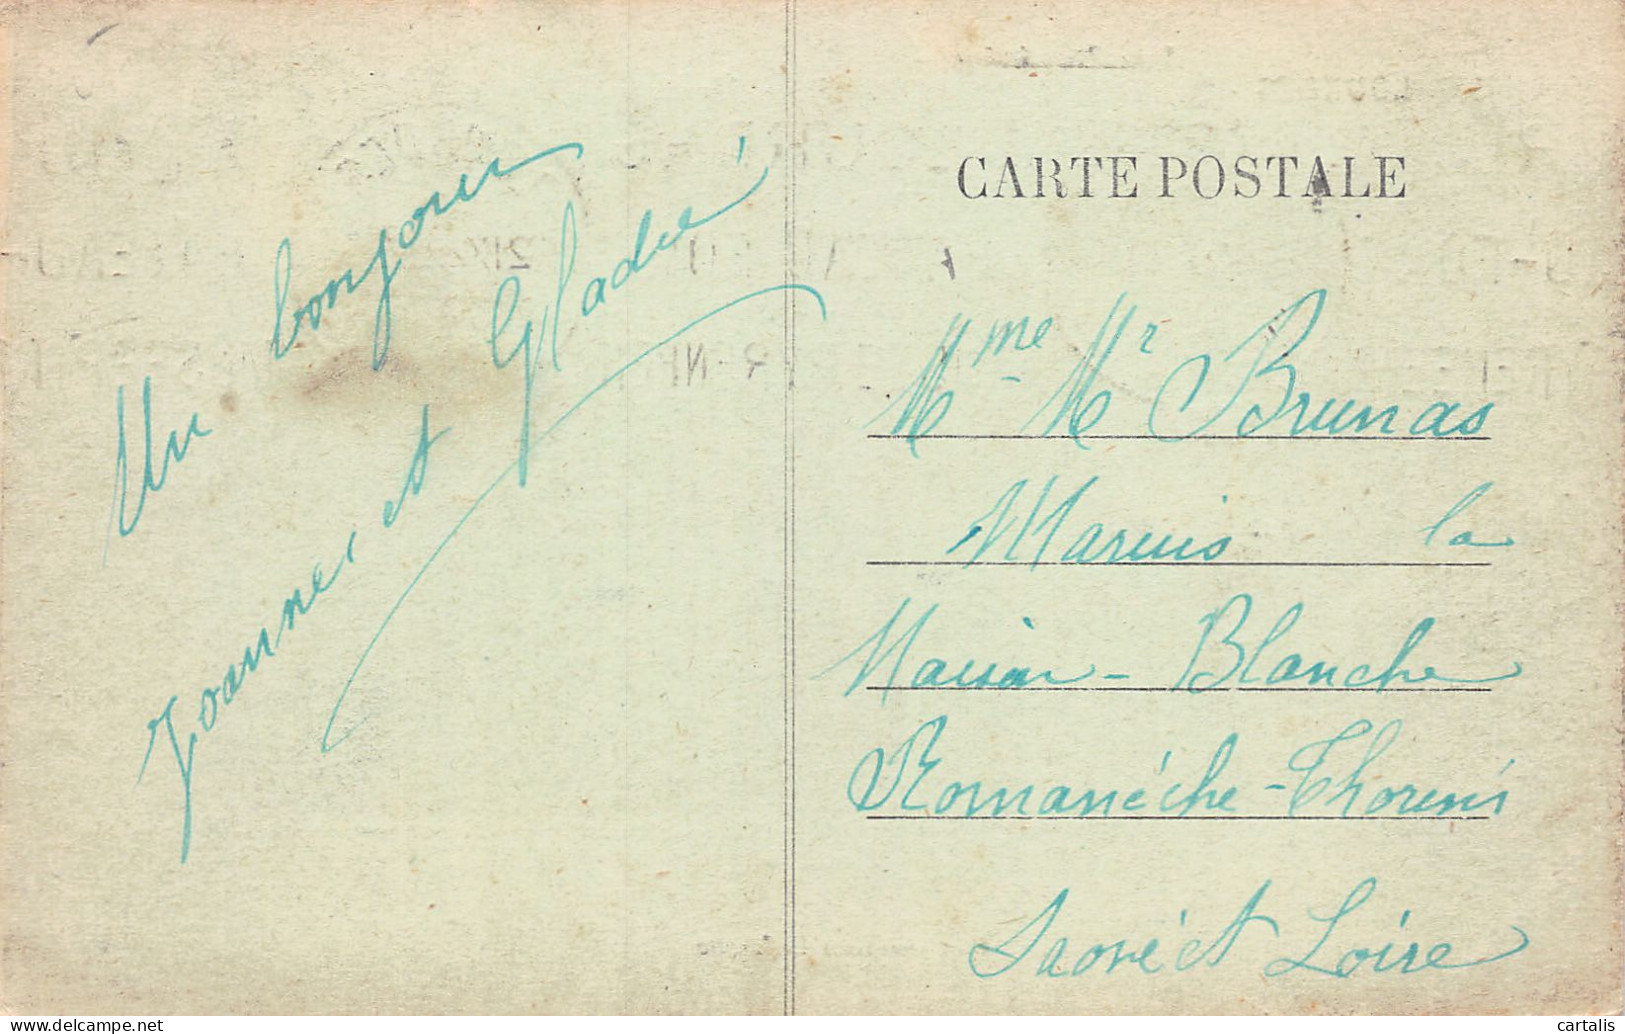 Un bonjour
Joannes et Gladié
CARTE POSTALE
Mme Mr Brunas
Marius la
Maison - Blanche
Romanéche - Thorins
Saone et Loire
cartalis